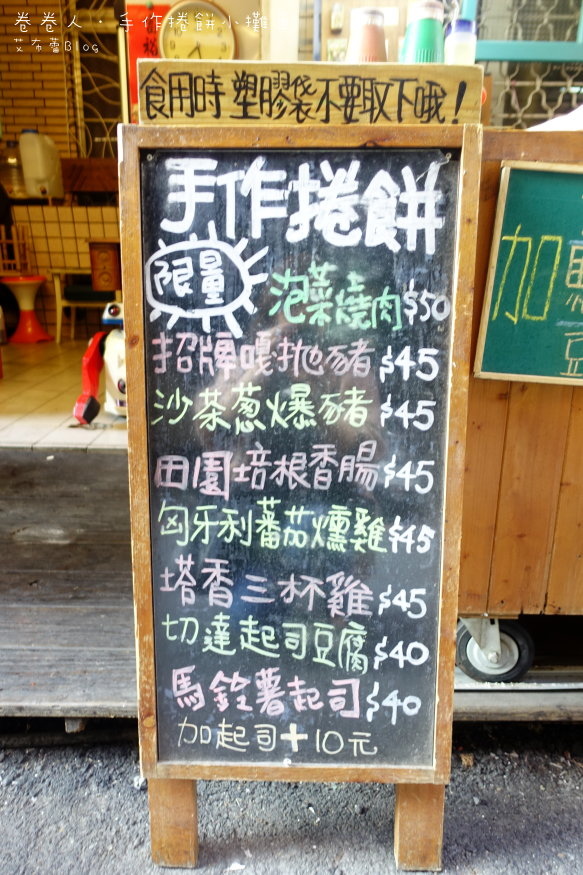 卷卷人·手作捲餅小攤
艾布蕾Blog
食用時塑膠袋不要取下哦！
手作捲餅
限量
泡菜燒肉$50
招牌嘎抛豬$45
沙茶葱爆豬$45
田園培根香腸$45
匈牙利蕃茄燻雞$45
塔香三杯雞$45
切達起司豆腐$40
馬鈴薯起司$40
加起司+10元
加